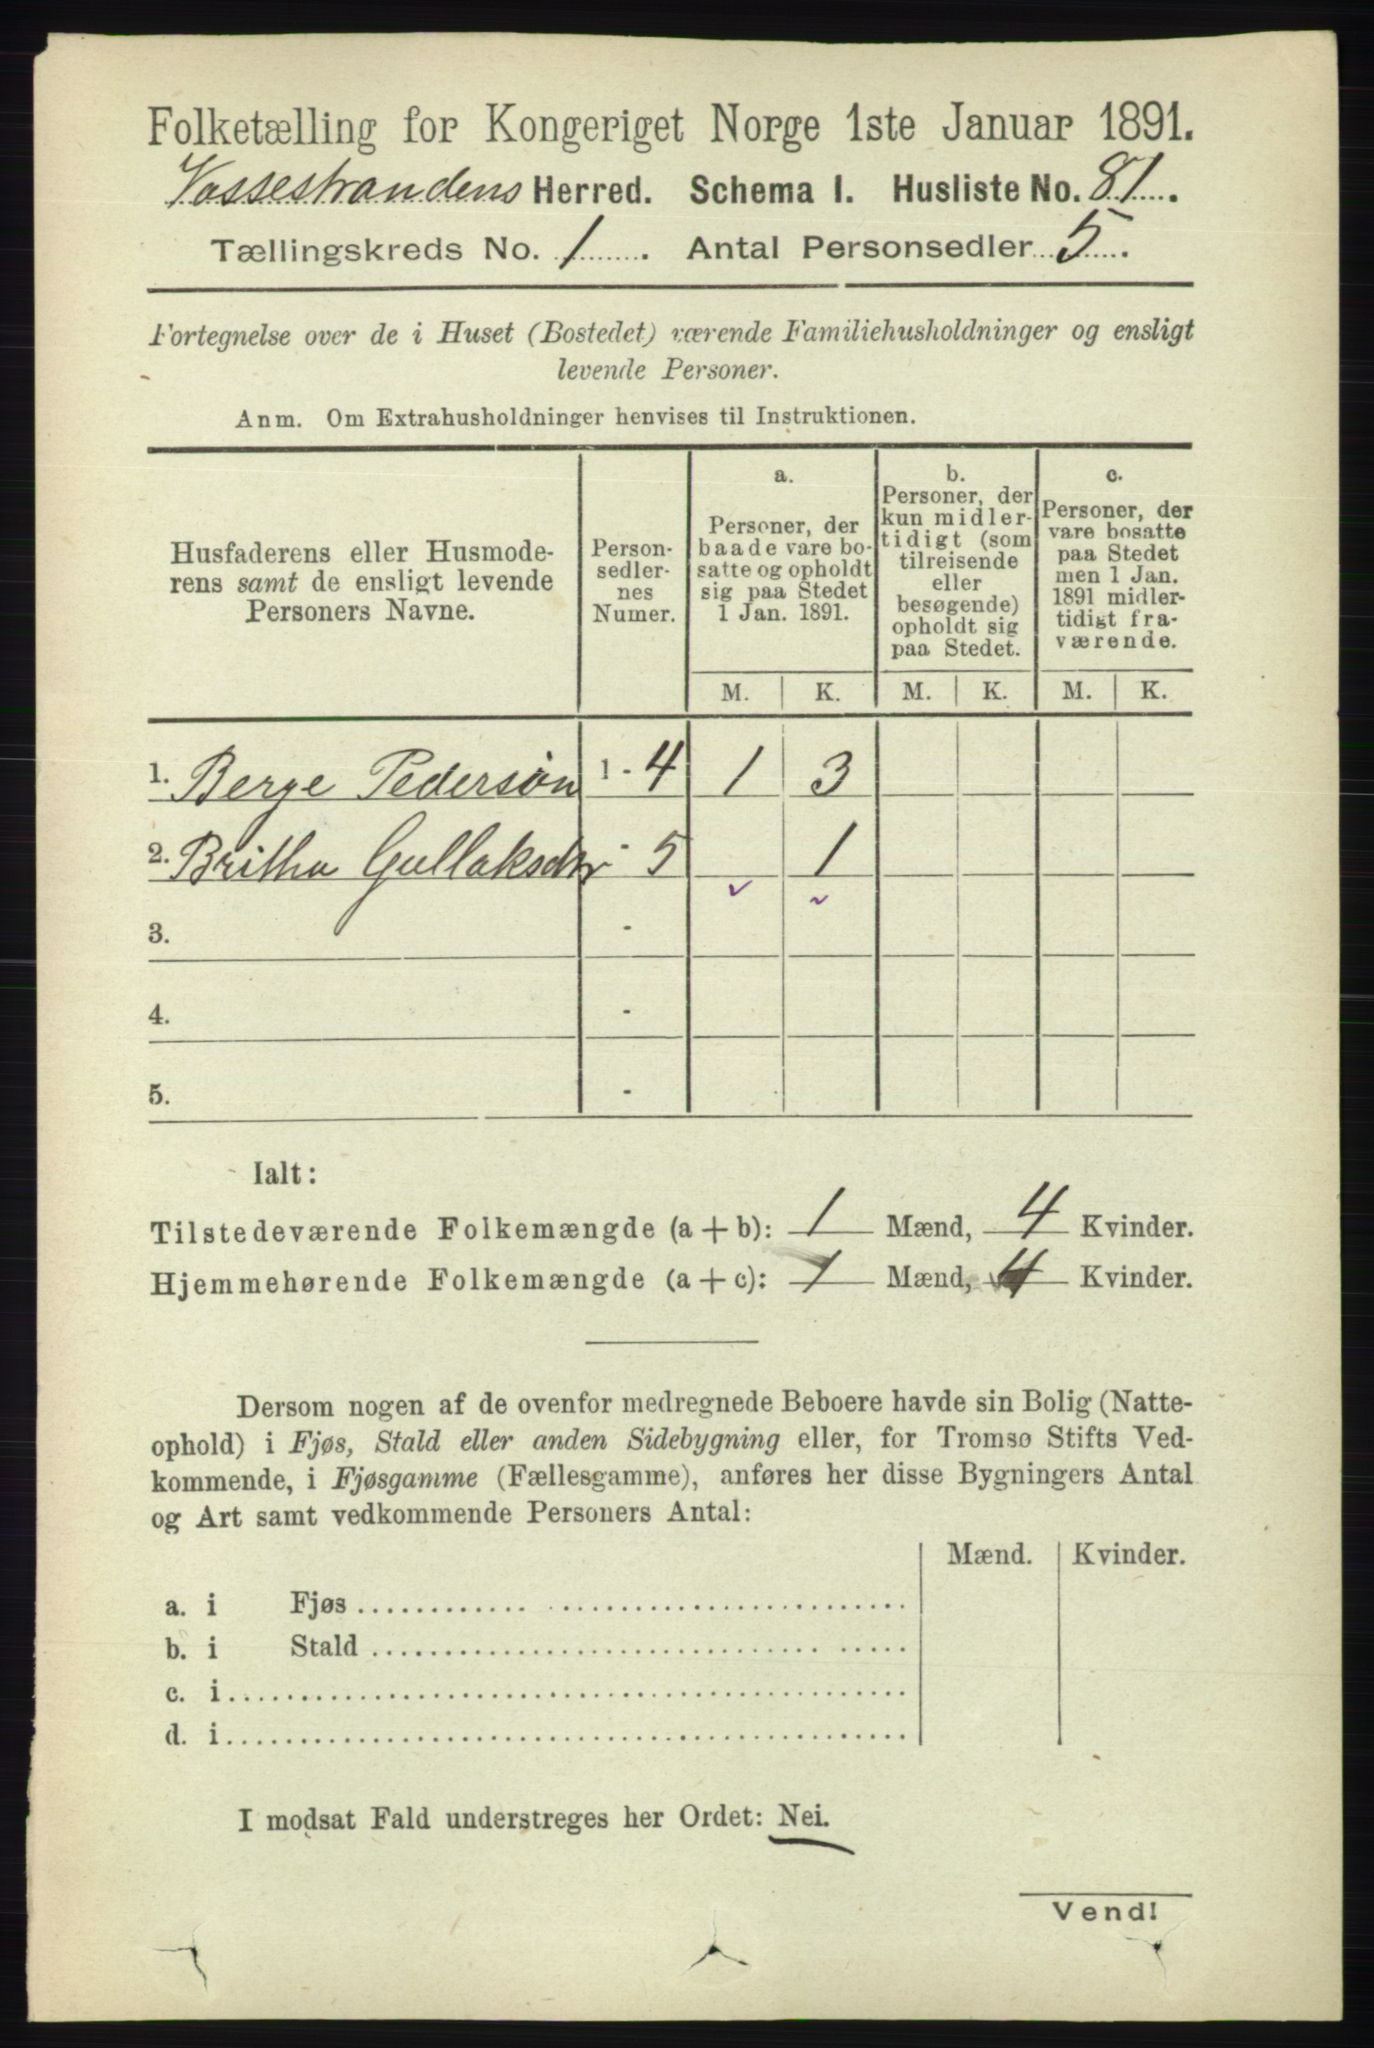 Folketælling for Kongeriget Norge 1ste Januar 1891.
Vossestrandens Herred. Schema I. Husliste No. 81.
Tællingskreds No. 1. Antal Personsedler 5.
Fortegnelse over de i Huset (Bostedet) værende Familiehusholdninger og ensligt
levende Personer.
Anm. Om Extrahusholdninger henvises til Instruktionen.
Husfaderens eller Husmode-
rens samt de ensligt levende
Personers Navne.
Person-
sedler-
nes
Numer.
a.
Personer, der
baade vare bo-
satte og opholdt
sig paa Stedet
1 Jan. 1891.
b.
Personer, der
kun midler-
tidigt (som
tilreisende
eller
besøgende)
opholdt sig
paa Stedet.
c.
Personer, der
vare bosatte
paa Stedet
men 1 Jan.
1891 midler-
tidigt fra-
værende.
M. K. M. K. M. K.
1. Berge Pedersøn 1 - 4 1 3
2. Britha Gullaksdtr - 5 1
3. -
4. -
5. -
Ialt:
Tilstedeværende Folkemængde (a + b): 1 Mænd, 4 Kvinder.
Hjemmehørende Folkemængde (a + c): 1 Mænd, 4 Kvinder.
Dersom nogen af de ovenfor medregnede Beboere havde sin Bolig (Natte-
ophold) i Fjøs, Stald eller anden Sidebygning eller, for Tromsø Stifts Ved-
kommende, i Fjøsgamme (Fællesgamme), anføres her disse Bygningers Antal
og Art samt vedkommende Personers Antal:
Mænd. Kvinder.
a. i Fjøs
b. i Stald
c. i
d. i
I modsat Fald understreges her Ordet: Nei.
Vend!